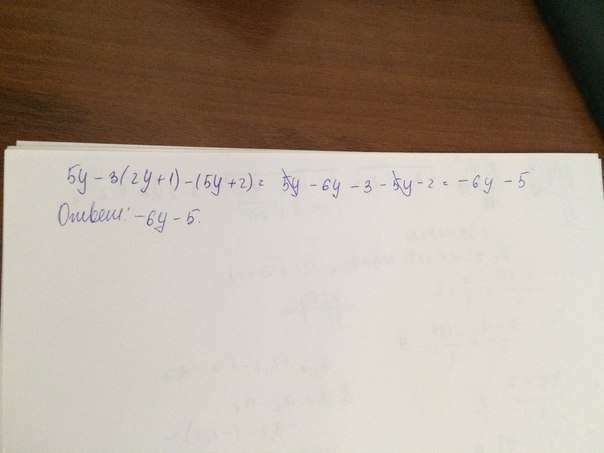 5y - 3(2y+1) - (5y+2) = 5y - 6y - 3 - 5y - 2 = -6y - 5
Ответ: -6y - 5.